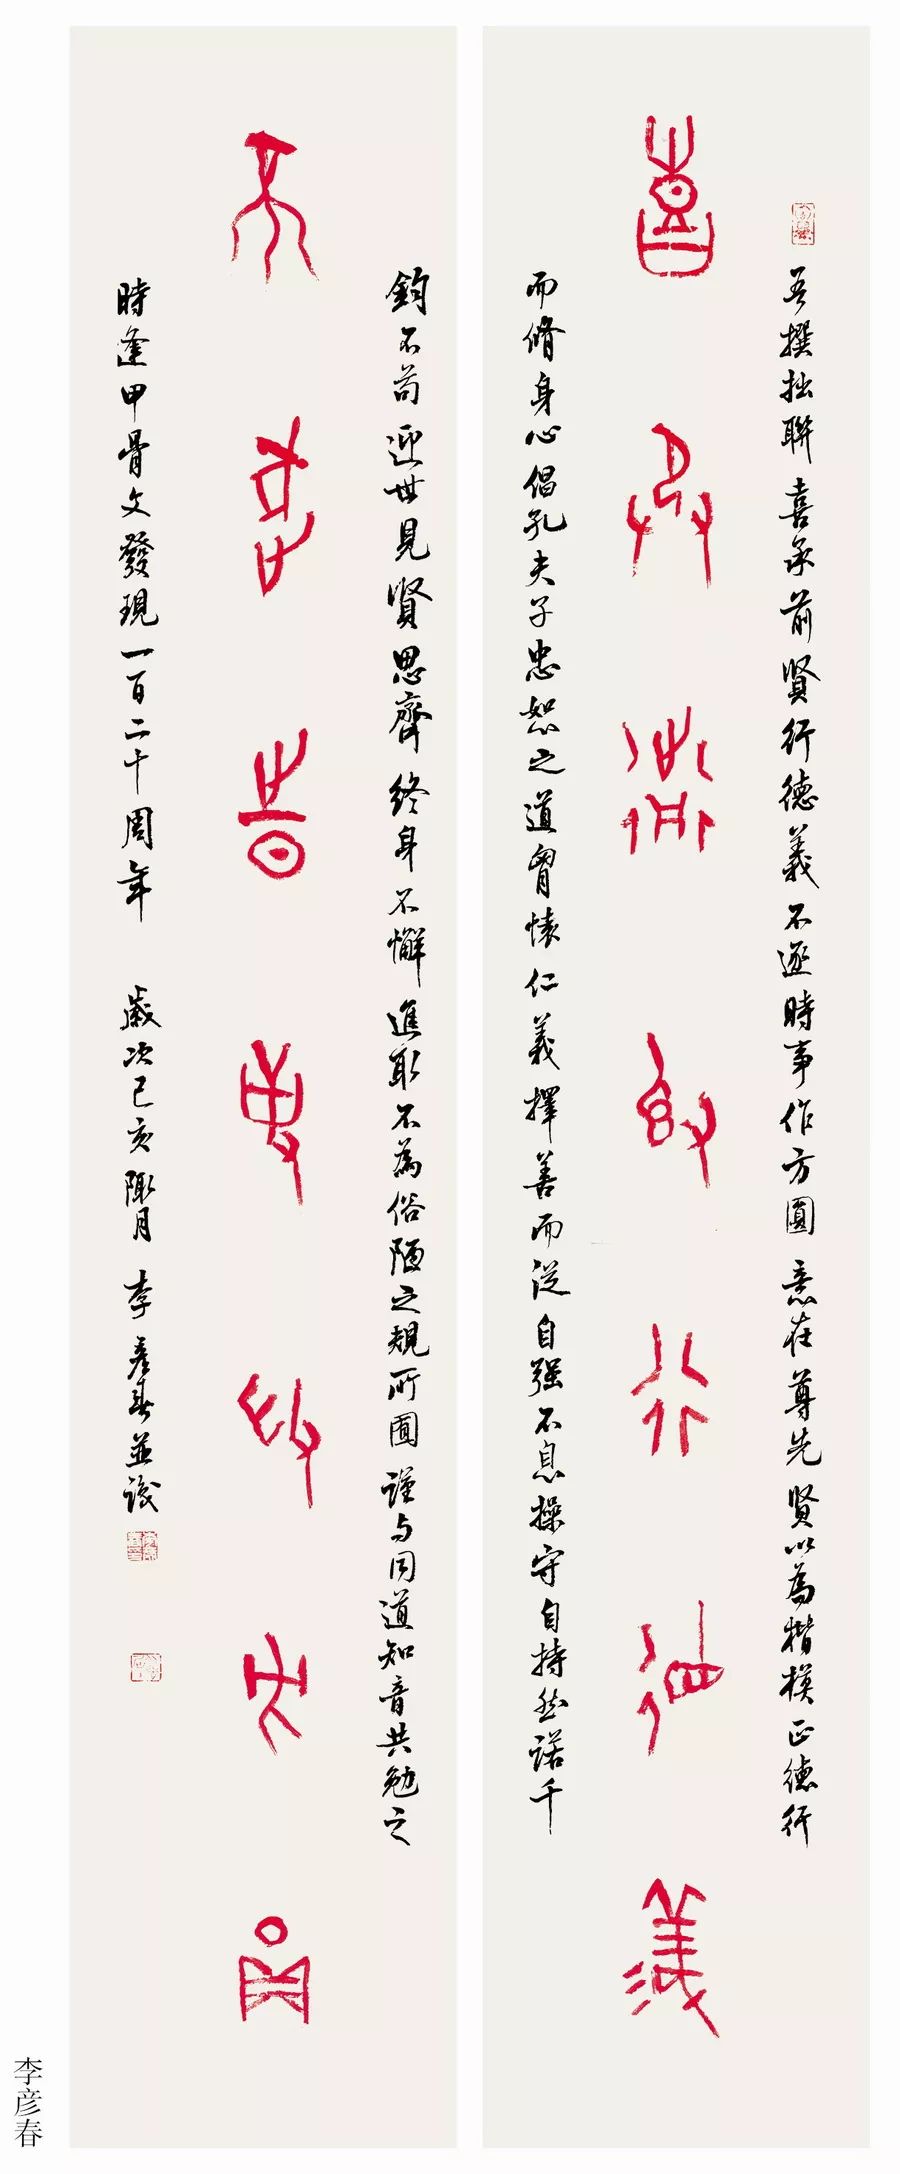 喜承前賢行德義
吾撰拙聯喜承前賢行德義不逐時事作方圓意在尊先賢以為楷模正德行
而脩身心倡孔夫子忠恕之道胷懷仁義擇善而從自强不息操守自持然諾千
鈞不苟迎世見賢思齊終身不懈進取不為俗陋之規所囿謹与同道知音共勉之
不逐時事作方圓
時逢甲骨文發現一百二十周年 歲次己亥陬月 李彦春並識
李彦春